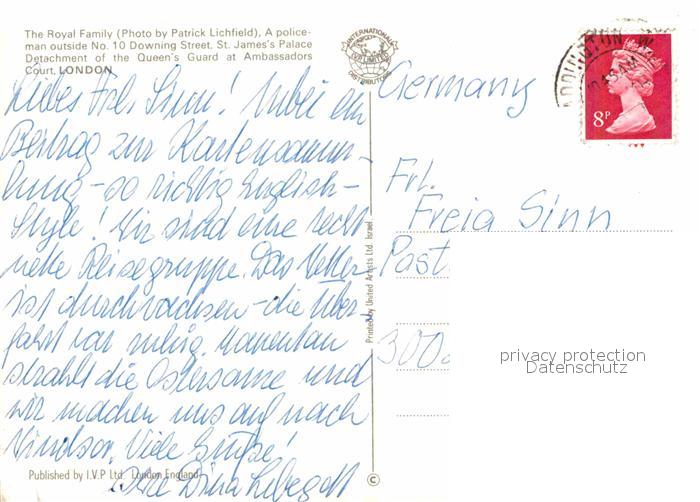 The Royal Family (Photo by Patrick Lichfield), A police-
man outside No. 10 Downing Street, St. James's Palace
Detachment of the Queen's Guard at Ambassadors
Court, LONDON
Liebes Frl. Sinn! Anbei ein
Beitrag zur Kartensamm-
lung - so richtig English-
Style! Wir sind eine recht
nette Reisegruppe. Das Wetter
ist durchwachsen - die Über-
fahrt war ruhig. Momentan
strahlt die Ostersonne und
wir machen uns auf nach
Windsor. Viele Grüße!
Ihre Dina
Published by I.V.P Ltd. London England
Printed by United Artists Ltd. Israel
©
INTERNATIONAL
DISTRIBUTORS
8P
Germany
Frl.
Freia Sinn
Post
300
privacy protection
Datenschutz